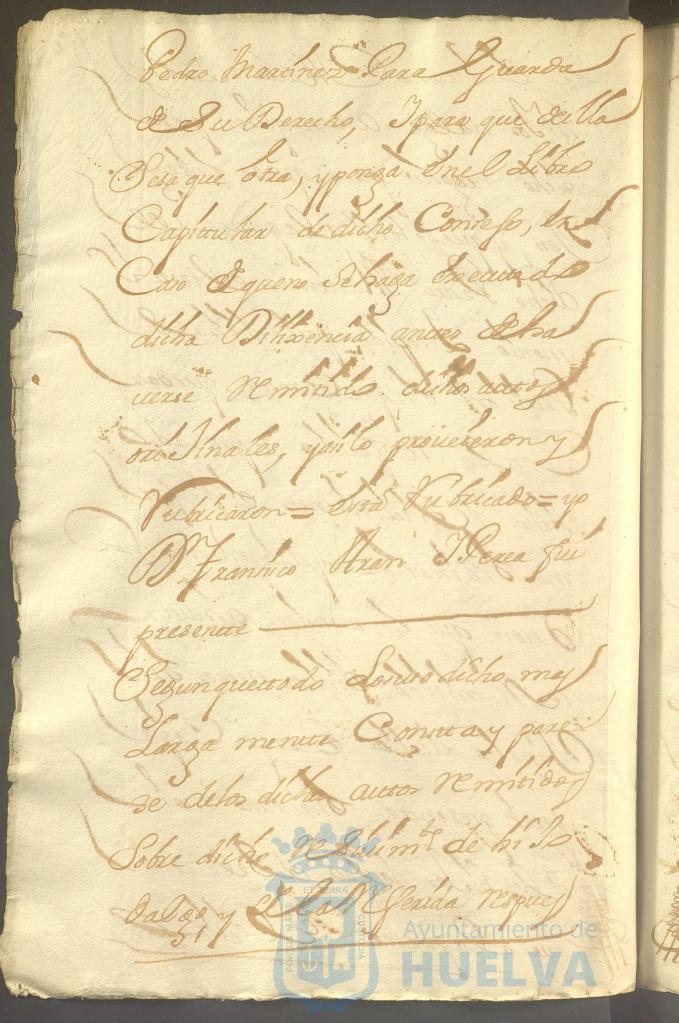 Pedro Martinez Para Guarda
de Su Derecho, Y para que della
Seia que otra, y ponga en el Libro
Capitular de dicho Consejo, en
Caso de que no Se haga executado
dicha Dilixencia antes de ha
verse Remitido dichos autos
orixinales, y asi lo proveieron y
Rubricaron = esta Rubricado = yo
Dn Francisco Aran I Perea fui
presente
Segun que todo Lo suso dicho mas
Larga mente Consta y pare
se de los dichos autos Remitidos
Sobre dicho Resivimto de hiJo
dalgo y a La Referida Respues
Ayuntamiento de
HUELVA